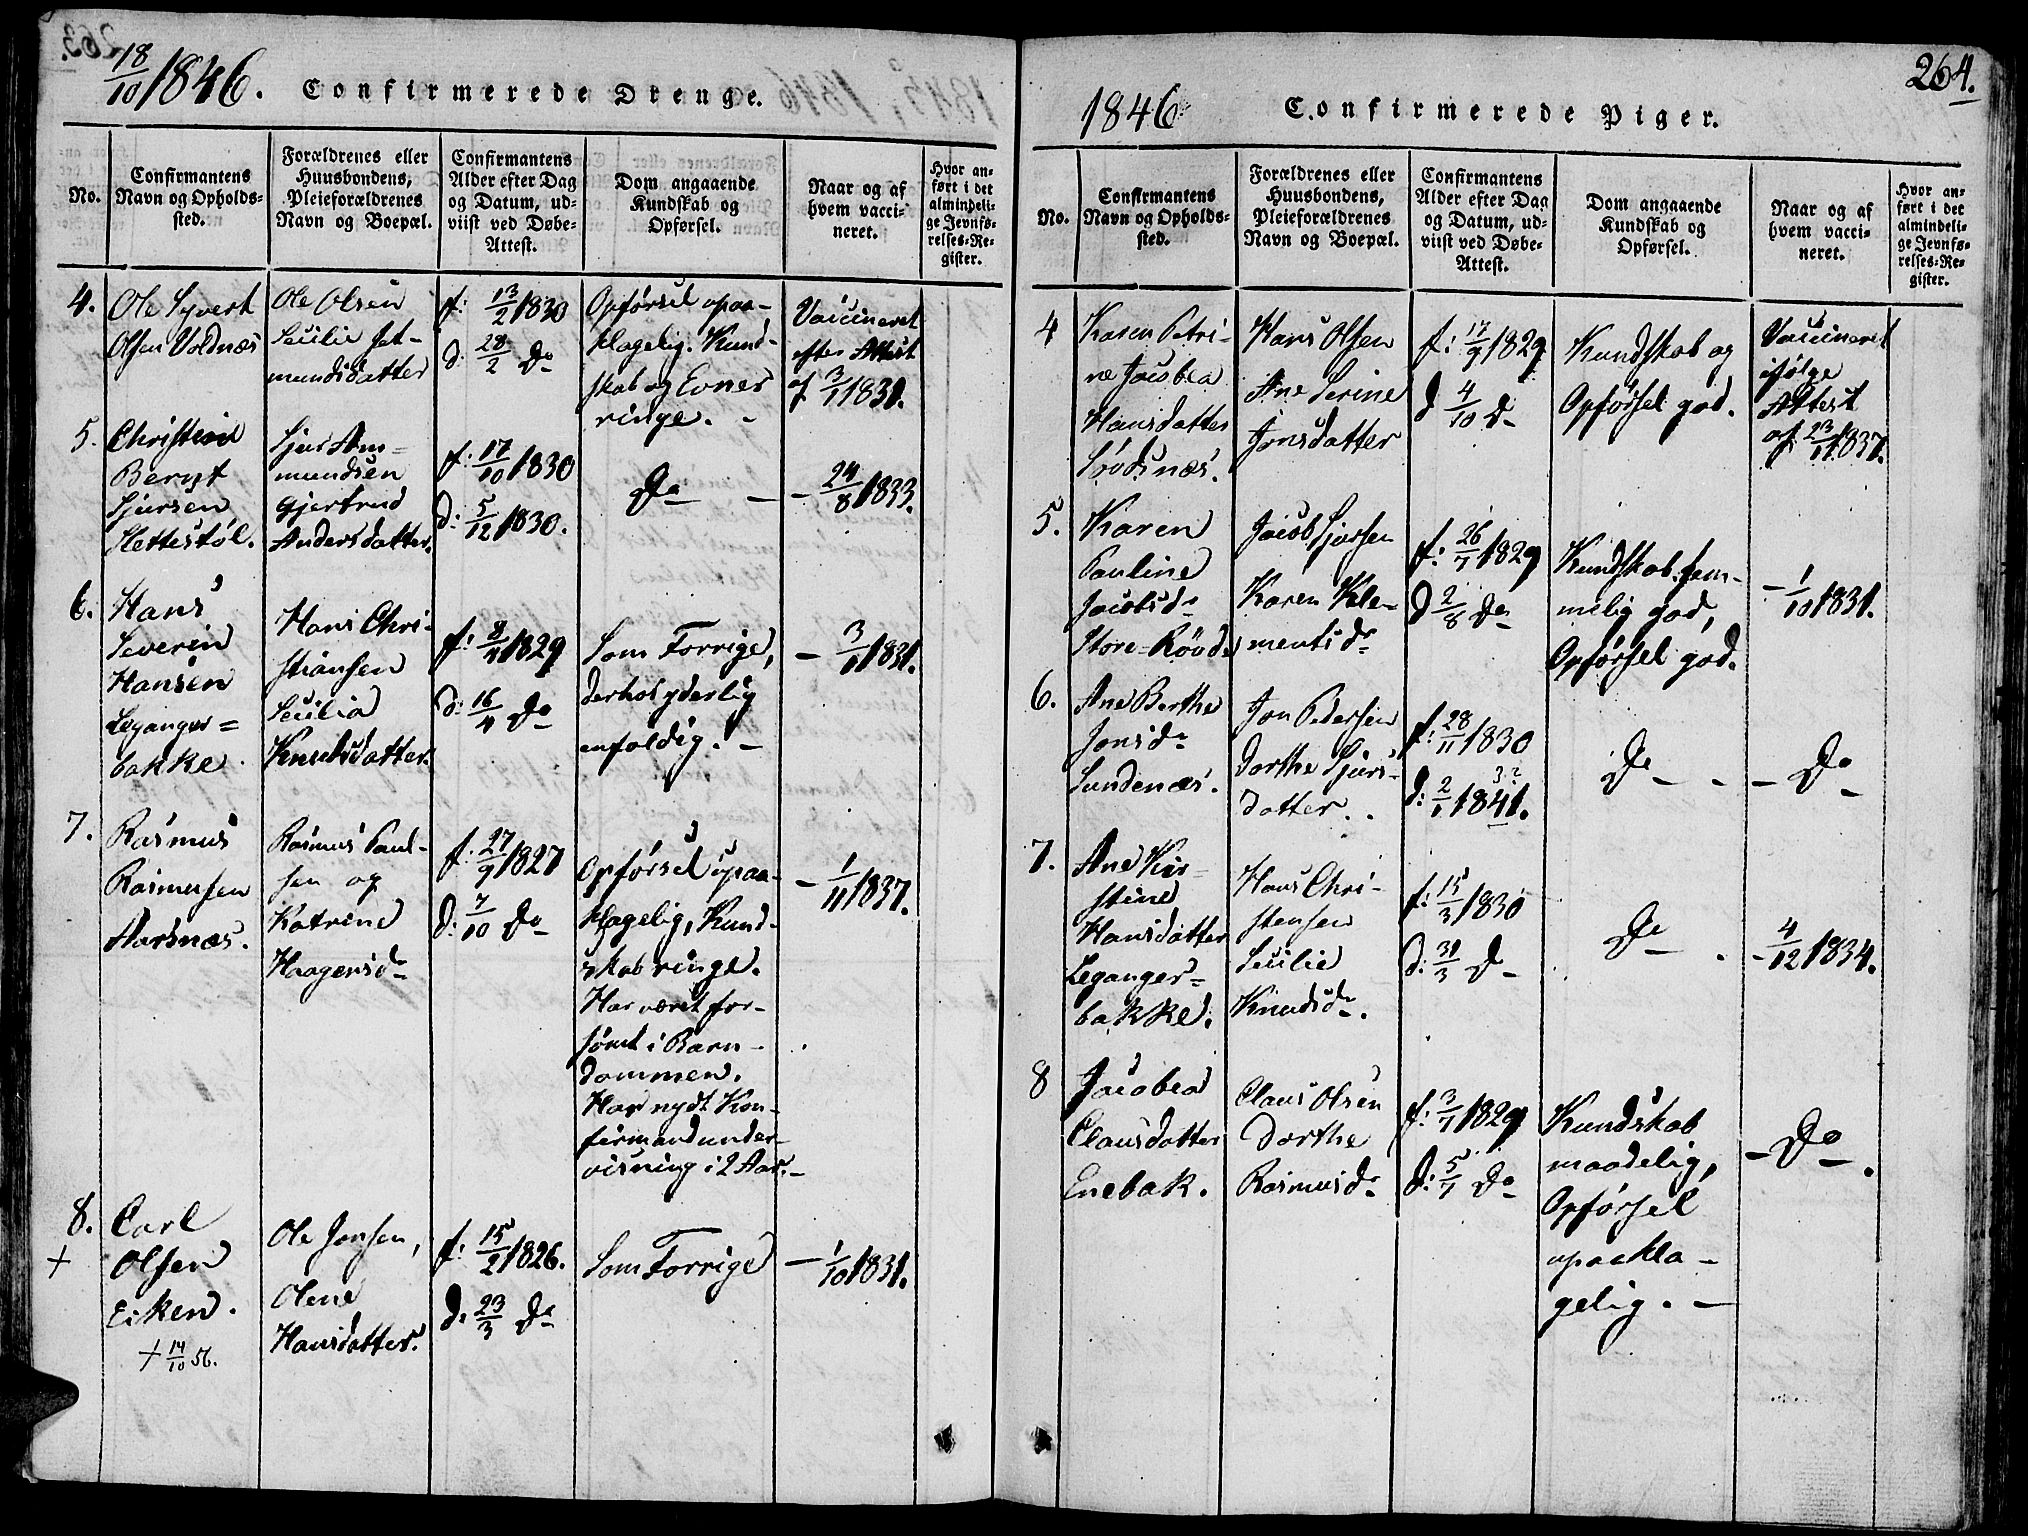 18/10 1846. Confirmerede Drenge.
No.
Confirmantens
Navn og Opholds-
sted.
Forældrenes eller
Huusbondens,
Pleieforældrenes
Navn og Boepæl.
Confirmantens
Alder efter Dag
og Datum, ud-
viist ved Døbe-
Attest.
Dom angaaende
Kundskab og
Opførsel.
Naar og af
hvem vacci-
neret.
Hvor an-
ført i det
almindeli-
ge Jevnfø-
relses-Re-
gister.
4.
Ole Syvert
Olsen Voldnæs
Ole Olsen
Cecilie
mundsdatter
f: 13/2 1830
d: 28/2 Do
Opførsel upaa-
klagelig. Kund-
skab og Evner
ringe. -
Vaccineret
efter Attest
af 3/11 1831.
5.
Christian
Bernt
Sjursen
Slettestøl.
Sjur Am-
mundsen
Gjertrud
Andersdatter.
f: 17/10 1830
d: 5/12 1830.
Do -
- 24/8 1833.
6.
Hans
Severin
Hansen
Leganger=
bakke
Hans Chri-
stiansen
Cecilia
Knudsdatter.
f: 8/4 1829
d: 16/4 Do
Som Forrige,
derhos yderlig
enfoldig. -
- 3/11 1831.
7.
Rasmus
Rasmussen
Aarsnæs.
Rasmus Paul-
sen og
Katrine
Haagensd-
f: 27/9 1827
d: 7/10 Do
Opførsel upaa-
klagelig, Kund-
skab ringe.
Har været for-
sømt i Barn-
dommen.
Har nydt Kon-
firmandunder-
visning i 2 Aar. -
- 1/11 1837.
8.
+
Carl
Olsen
Eiken.
+ 14/10 56.
Ole Jonsen,
Olene
Hansdatter.
f: 15/2 1826.
d: 23/3 Do
Som Forrige
- 1/10 1831.
264.
1846 Confirmerede Piger.
No.
Confirmantens
Navn og Opholds-
sted.
Forældrenes eller
Huusbondens,
Pleieforældrenes
Navn og Boepæl.
Confirmantens
Alder efter Dag
og Datum, ud-
viist ved Døbe-
Attest.
Dom angaaende
Kundskab og
Opførsel.
Naar og af
hvem vacci-
neret.
Hvor an-
ført i det
almindeli-
ge Jevnfø-
relses-Re-
gister.
4
Karen Petri-
ne Jacobea
Hansdatter
Hans Olsen
Ane Serine
Jonsdatter
f: 17/9 1829
d 4/10 D-
Kundskab og
Opførsel god.
Vaccineret
ifølge
Attest
af 23/11 1837.
5.
Karen
Pauline
Jacobsd-
Store-Røvde
Jacob Sjursen
Karen Kle-
mentsd-
f: 26/7 1829
d 2/8 Do
Kundskab tem-
melig god,
Opførsel god.
- 1/10 1831.
6.
Ane Berthe
Jonsd-
Sundenæs.
Jon Pedersen
Dorthe Sjurs-
datter.
f: 28/11 1830
d: 2/1 1841. 3?
Do - -
- Do -
7.
Ane Kir-
stine
Hansdatter
Leganger=
bakke.
Hans Chri-
stensen
Cecilie
Knudsd-.
f: 15/3 1830
d: 31/3 D-
Do -
- 4/12 1834.
8
Jacobea
Clausdatter
Enebak.
Claus Olsen
Dorthe
Rasmusd-
f: 3/7 1829
d: 5/7 Do
Kundskab
maadelig,
Opførsel
upaakla-
gelig. -
- Do -.